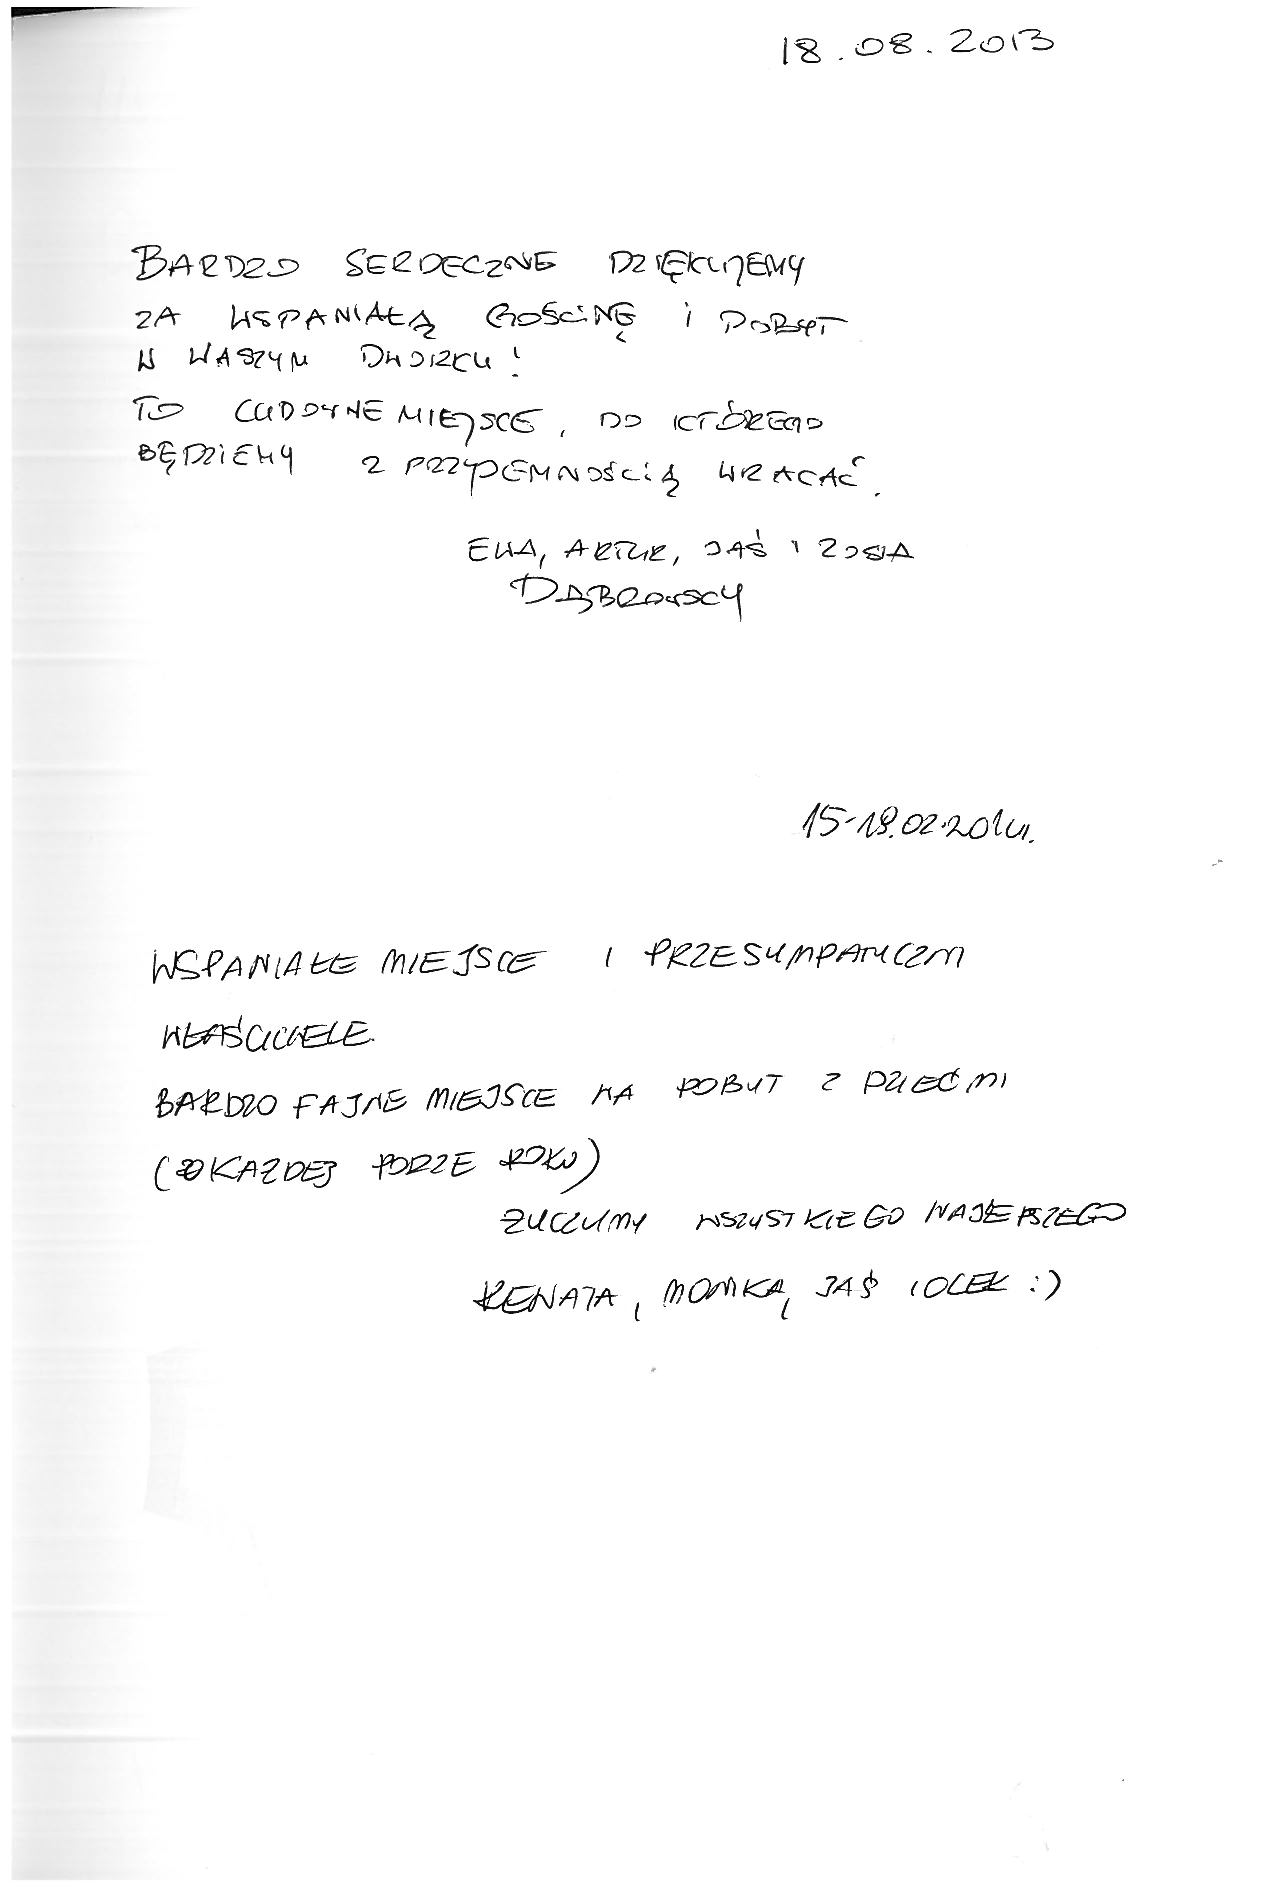 18.08.2013
BARDZO SERDECZNE DZIĘKUJEMY
ZA WSPANIAŁĄ GOŚCINĘ i POBYT
W WASZYM DWORKU!
TO CUDOWNE MIEJSCE, DO KTÓREGO
BĘDZIEMY Z PRZYJEMNOŚCIĄ WRACAĆ.
EWA, ARTUR, JAŚ I ZOSIA
DĄBROWSCY
15-19.02.2014.
WSPANIAŁE MIEJSCE I PRZESYMPATYCZNI
WŁAŚCICIELE.
BARDZO FAJNE MIEJSCE NA POBYT Z DZIEĆMI
(O KAŻDEJ PORZE ROKU)
ŻYCZYMY WSZYSTKIEGO NAJLEPSZEGO
RENATA, MONIKA, JAŚ I OLEK :)